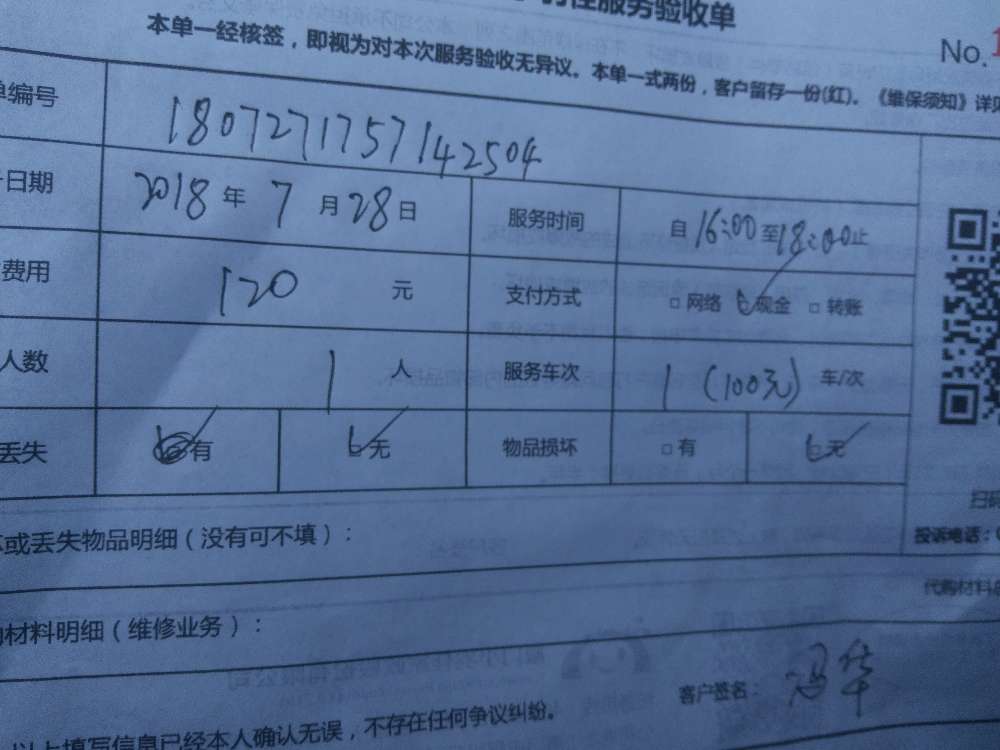 服务验收单
本单一经核签，即视为对本次服务验收无异议。本单一式两份，客户留存一份(红)。《维保须知》详见
No.
单编号 1807271757142504
日期 2018年7月28日 服务时间 自16:00至18:00止
费用 120 元 支付方式 □网络 □现金 □转账
人数 1 人 服务车次 1 (100元) 车/次
丢失 □有 □无 物品损坏 □有 □无
扫码
投诉电话：
或丢失物品明细（没有可不填）：
代购材料
材料明细（维修业务）：
客户签名：冯华
以上填写信息已经本人确认无误，不存在任何争议纠纷。